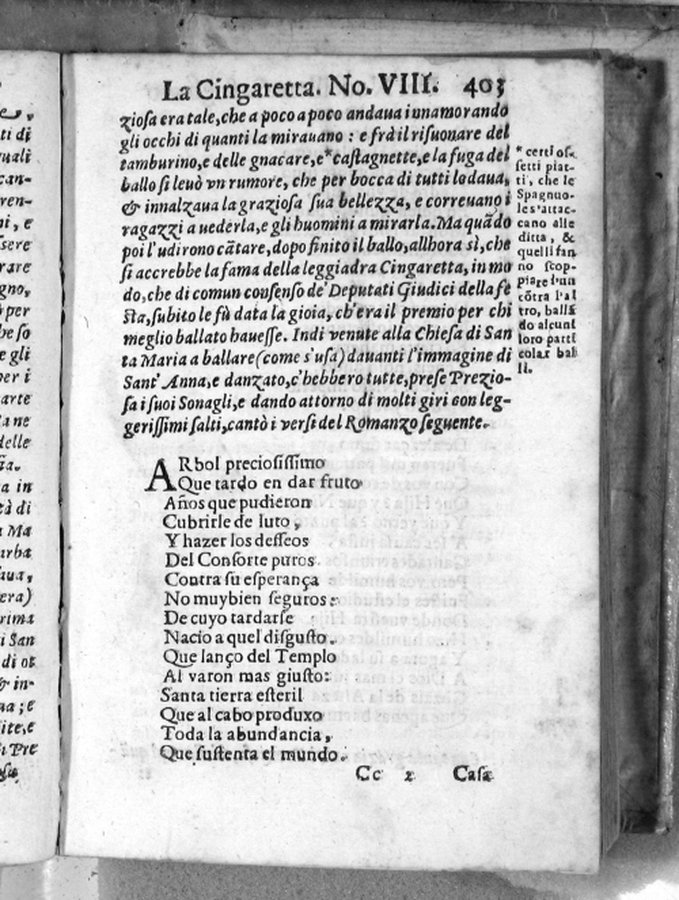 La Cingaretta. No. VIII. 403
ziosa era tale, che a poco a poco andaua innamorando
gli occhi di quanti la mirauano : e frà il risuonare del
tamburino, e delle gnacare, e* castagnette, e la fuga del
ballo si leuò vn rumore, che per bocca di tutti lodaua,
& innalzaua la graziosa sua bellezza, e correuano i
ragazzi a uederla, e gli huomini a mirarla. Ma quãdo
poi l'udirono cãtare, dopo finito il ballo, allhora sì, che
si accrebbe la fama della leggiadra Cingaretta, in mo
do, che di comun consenso de' Deputati Giudici della fe
sta, subito le fù data la gioia, ch'era il premio per chi
meglio ballato hauesse. Indi venute alla Chiesa di San
ta Maria a ballare (come s'usa) dauanti l'immagine di
Sant' Anna, e danzato, c'hebbero tutte, prese Prezio-
sa i suoi Sonagli, e dando attorno di molti giri con leg-
gerissimi salti, cantò i versi del Romanzo seguente.
* certi os-
setti piat-
ti, che le
Spagnuo-
le s'attac-
cano alle
ditta, &
quelli fan
no scop-
piare l'un
cõtra l'al
tro, ballã
do alcuni
loro parti
colar bal
li.
ARbol preciosissimo
Que tardo en dar fruto
Años que pudieron
Cubrirle de luto,
Y hazer los desseos
Del Consorte puros
Contra su esperança
No muybien seguros:
De cuyo tardarse
Nacio a quel disgusto.
Que lanço del Templo
Al varon mas giusto:
Santa tierra esteril
Que al cabo produxo
Toda la abundancia,
Que sustenta el mundo.
Cc 2 Casa